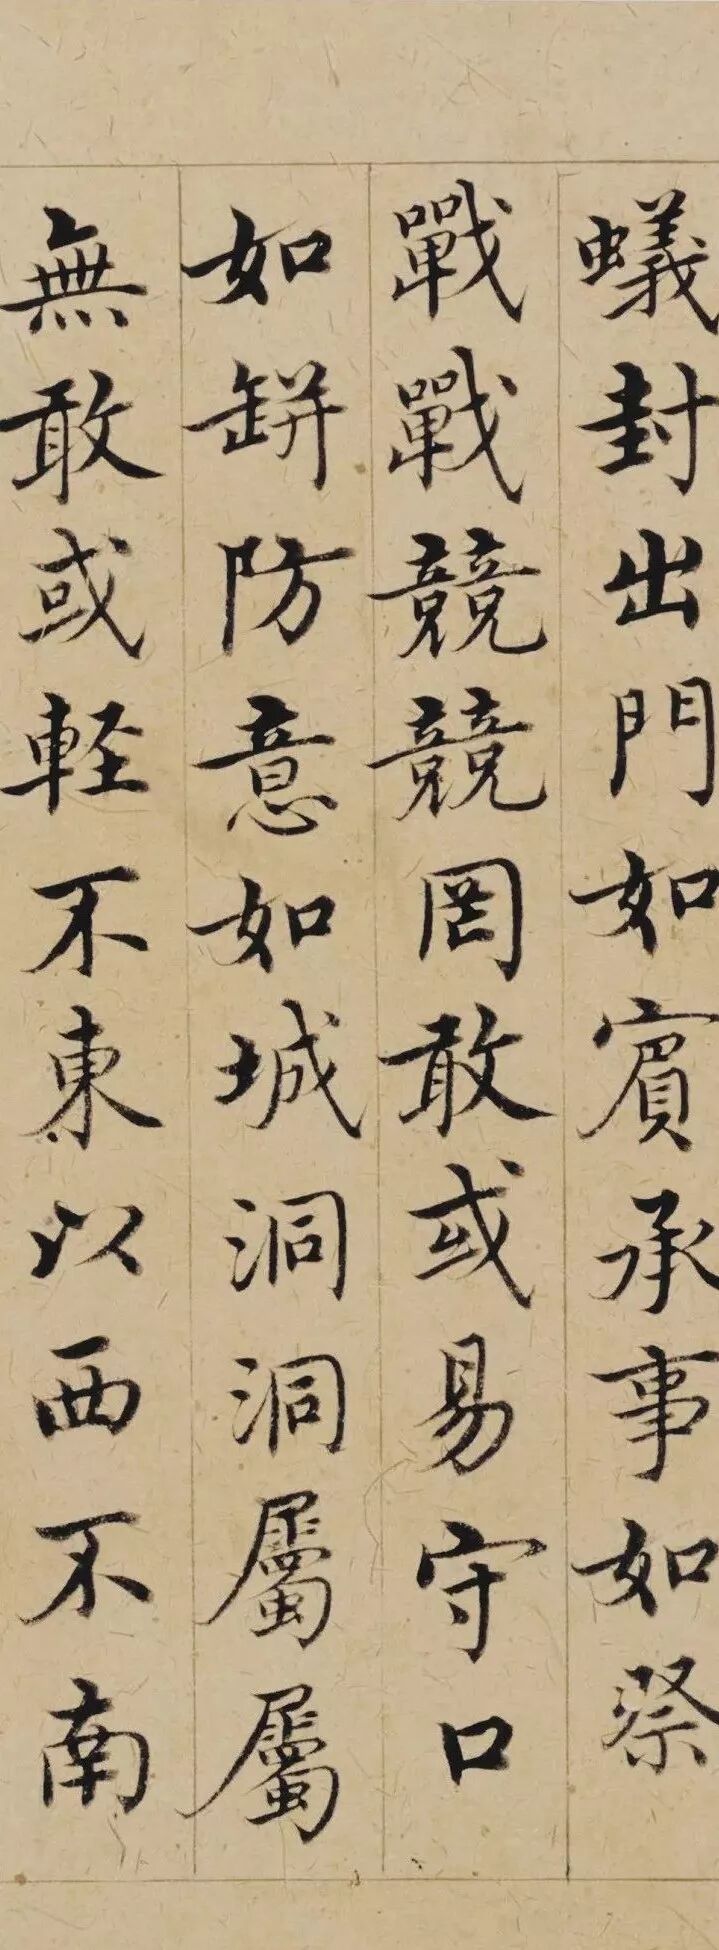 蟻封出門如賓承事如祭
戰戰競競罔敢或易守口
如缾防意如城洞洞屬屬
無敢或軽不東以西不南